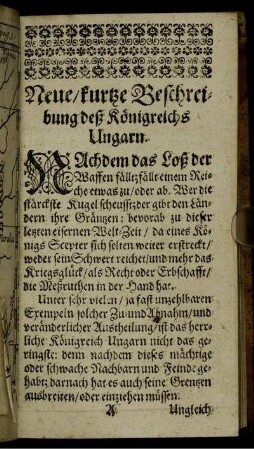 Neue/kurtze Beschrei-
bung deß Königreichs
Ungarn.
NAchdem das Loß der
Waffen fällt; fällt einem Rei-
che etwas zu/oder ab. Wer die
stärckste Kugel scheußt; der gibt den Län-
dern ihre Gräntzen: bevorab zu dieser
letzten eisernen Welt-Zeit/da eines Kö-
nigs Scepter sich selten weiter erstreckt/
weder sein Schwert reichet/und mehr das
Kriegsglück/als Recht oder Erbschafft/
die Meßruthen in der Hand hat.
Unter sehr vielen/ja fast unzehlbaren
Exempeln solcher Zu-und Abnahm/und
veränderlicher Austheilung/ist das herr-
liche Königreich Ungarn nicht das ge-
ringste: denn nachdem dieses mächtige
oder schwache Nachbarn und Feinde ge-
habt; darnach hat es auch seine Grentzen
ausbreiten/oder einziehen müssen.
A Ungleich